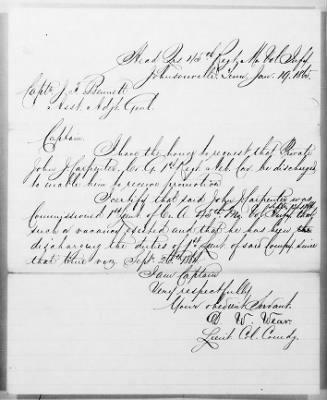 Head Qrs 45th Regt Mo Vol Infy
Johnsonville Tenn Jan. 19. 1865.
Capt. J. F. Bennett
Asst. Adgt Genl.
Captain
I have the honor to request that Private
John J Carpenter, Co. G. 1st Regt Neb. Cav be discharged
to enable him to receive promotion
I certify that said John J Carpenter was
Commissioned 1st Lieut of Co. A 45th Mo Vol Infy
such a vacancy existed and that he has been
discharging the duties of 1st Lieut of said Compy since
that time Sept 1864.
I am Captain
Very respectfully
Your obedient Servant.
D. W. Wear.
Lieut Col. Comdg.